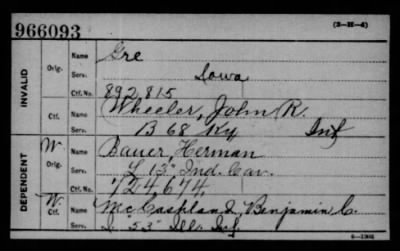 966093 (3-H-4)
INVALID
Orig. Name Gre
Serv. Iowa
Ctf. No. 892,815
Ctf. Name Wheeler, John R.
Serv. B 68 Ky Inf
DEPENDENT
W. Orig. Name Bauer, Herman
Serv. L 13" Ind. Cav.
Ctf. No. 724674
W. Ctf. Name Benjamin C.
Serv. I "53" Ills. Inf